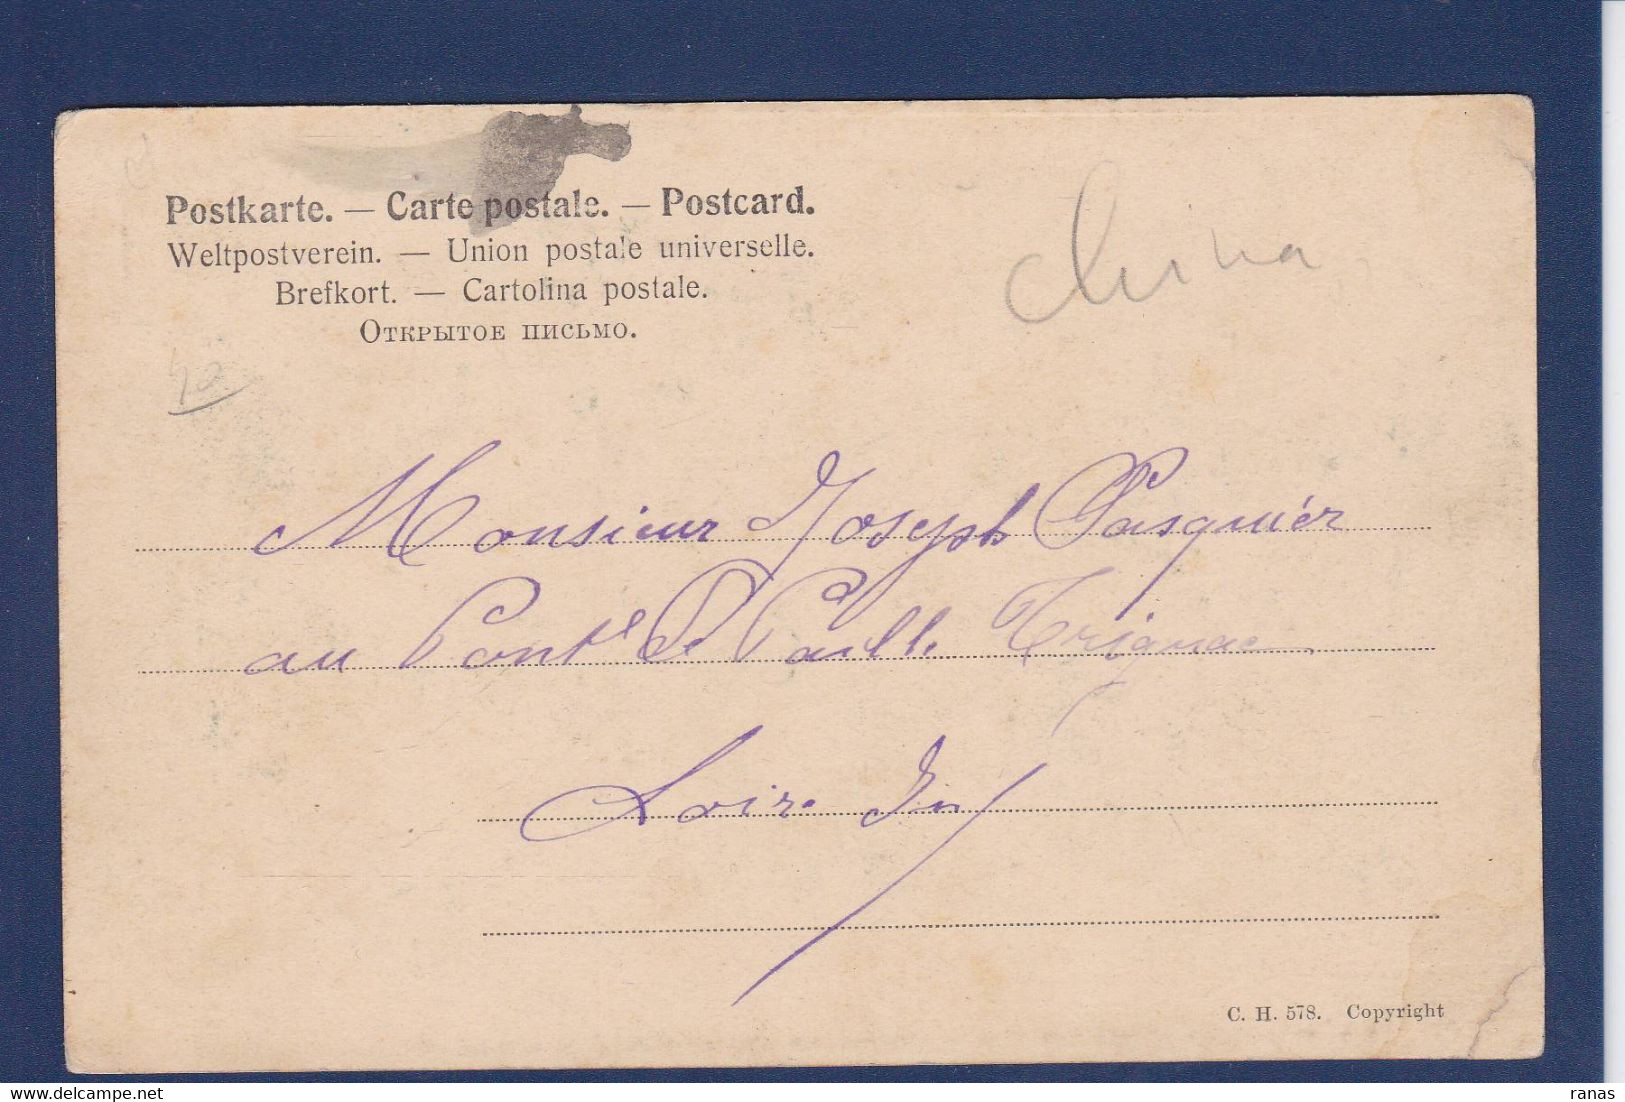 Postkarte. — Carte postale. — Postcard.
Weltpostverein. — Union postale universelle.
Brefkort. — Cartolina postale.
Открытое письмо.
China
Monsieur Joseph Pasquier
au Pont de Paille Trignac
Loire Inf
C. H. 578. Copyright
ranas